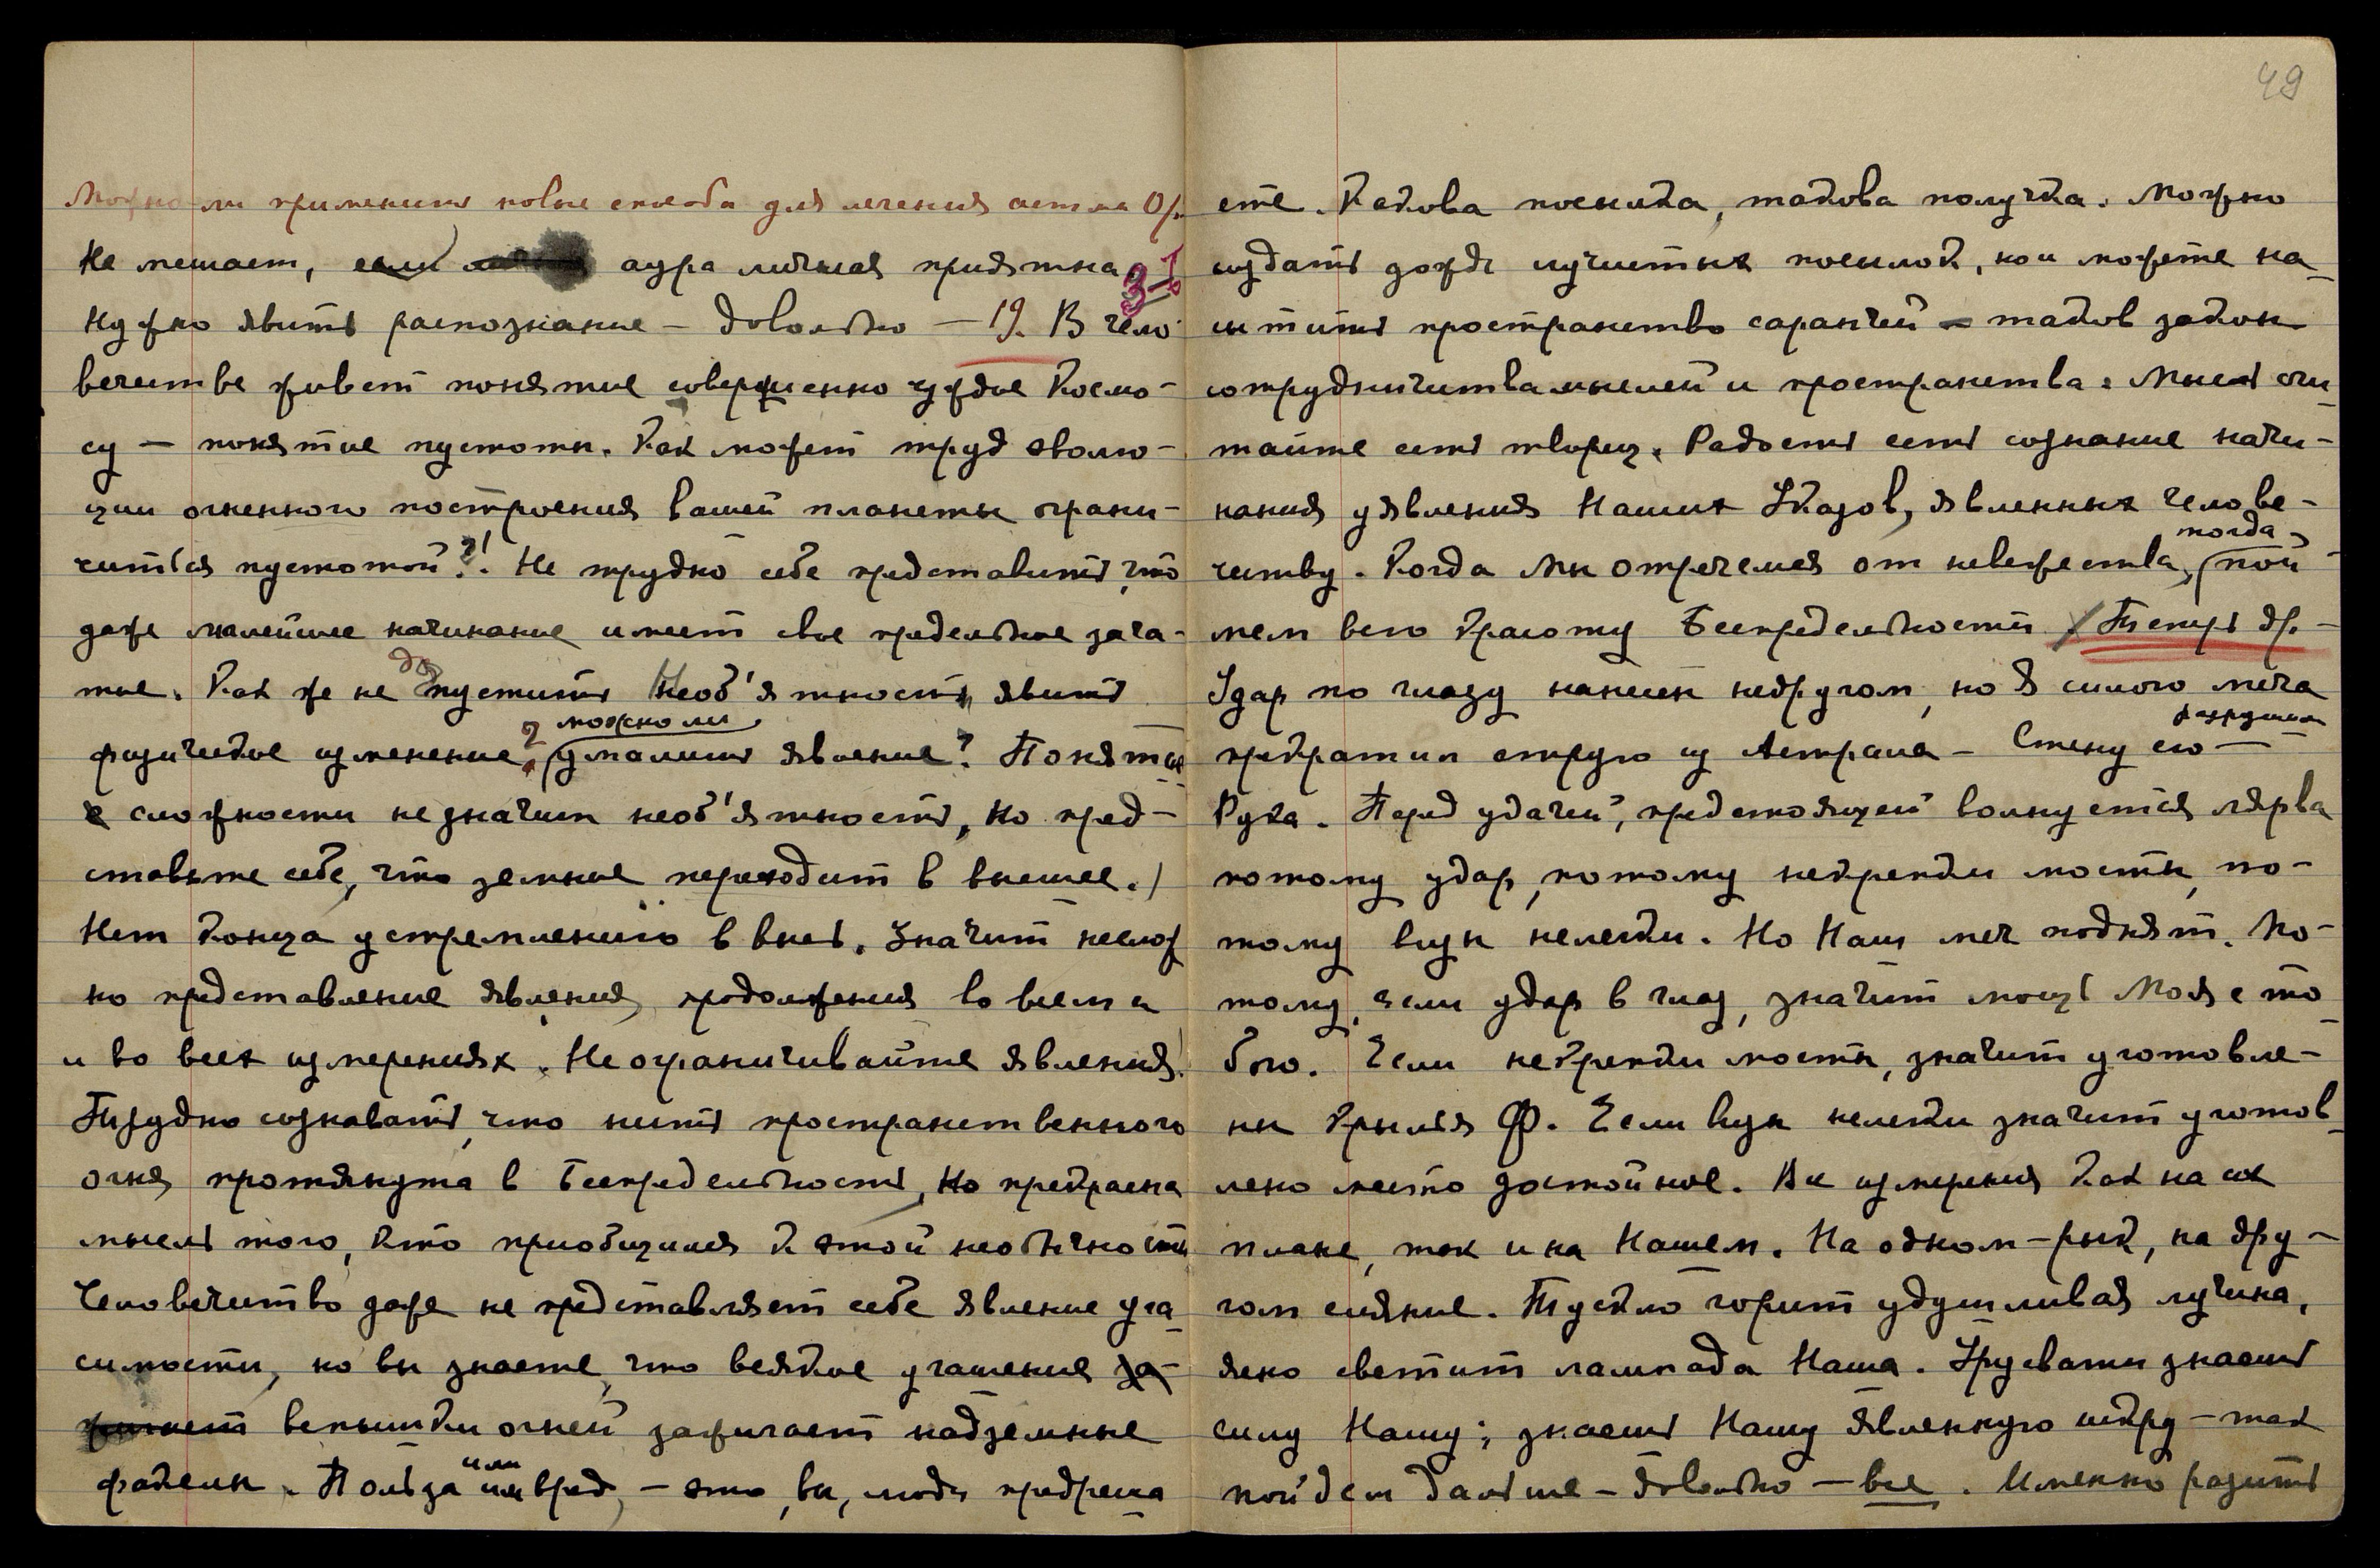 Можно ли применить новые способы для лечения астмы О/.
Не мешает, если аура личная приятна 31
Нужно явить распознание – довольно – 19. В чело-
вечестве живет понятие совершенно чуждое Космо-
су – понятие пустоты. Как может труд эволю-
ции огненного построения вашей планеты ограни-
читься пустотой?! Не трудно себе представить, что
даже малейшее начинание имеет свое предельное зача-
тие. Как же не допустить Необ'ятность явить
физическое изменение? можно ли умалить явление? Понятие
сложности не значит необ'ятность, но пред-
ставьте себе, что земные переходит в высшее.)
Нет конца устремлению в высь. Значит неслож
но представление явления продолжения во всем и
и во всех измерениях. Не ограничивайте явления!
Трудно сознавать, что нить пространственного
огня протянута в Беспредельность, Но прекрасна
мысль того, кто приобщился к этой необычности
Человечество даже не представляет себе явление уга-
симости, но вы знаете, что всякое угашение за-
жигает вспышки огней зажигает надземные
факелы. Польза или вред, – это, вы, люди предреша-
49
ете. Какова посылка, такова получка. Можно
создать дождь лучистых посылок, но и можете на-
сытить пространство саранчей – таков закон
сотрудничества мыслей и пространства. Мысль счи-
тайте есть творец. Радость есть сознание начи-
нания уявления Наших Указов, явленных челове-
честву. Когда Мы отречемся от невежества, тогда пой-
мем всю красоту Беспредельности Теперь др. –
Удар по глазу нанесен недругом, но Я силою меча
прекратил струю из Астрала – Стену его – разрушит
Рука. Перед удачей, предстоящей волнуется лярва
потому удар, потому некрепки мосты, по-
тому визы нелегки. Но Наш меч поднят. По-
тому, если удар в глаз, значит мощь Моя с то-
бою. Если некрепки мосты, значит уготовле-
ны крылья Ф. Если визы нелегки значит уготов-
лено место достойное. Вы измерения как на их
плане, так и на Нашем. На одном – рык, на дру-
гом сияние. Тускло горит удушливая лучина,
ясно светит лампада Наша. Урусвати знаешь
силу Нашу; знаешь Нашу явленную искру – так
пойдем дальше – довольно – все. Именно разить